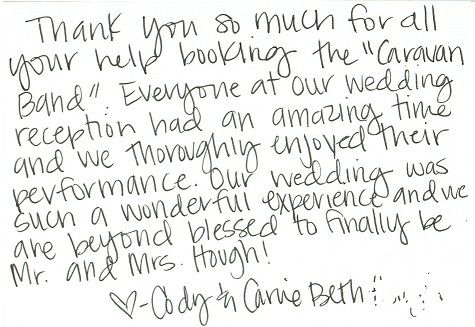 Thank you so much for all
your help booking the "Caravan
Band". Everyone at our wedding
reception had an amazing time
and we thoroughly enjoyed their
performance. Our wedding was
such a wonderful experience and we
are beyond blessed to finally be
Mr. and Mrs. Hough!
♡-Cody & Carrie Beth